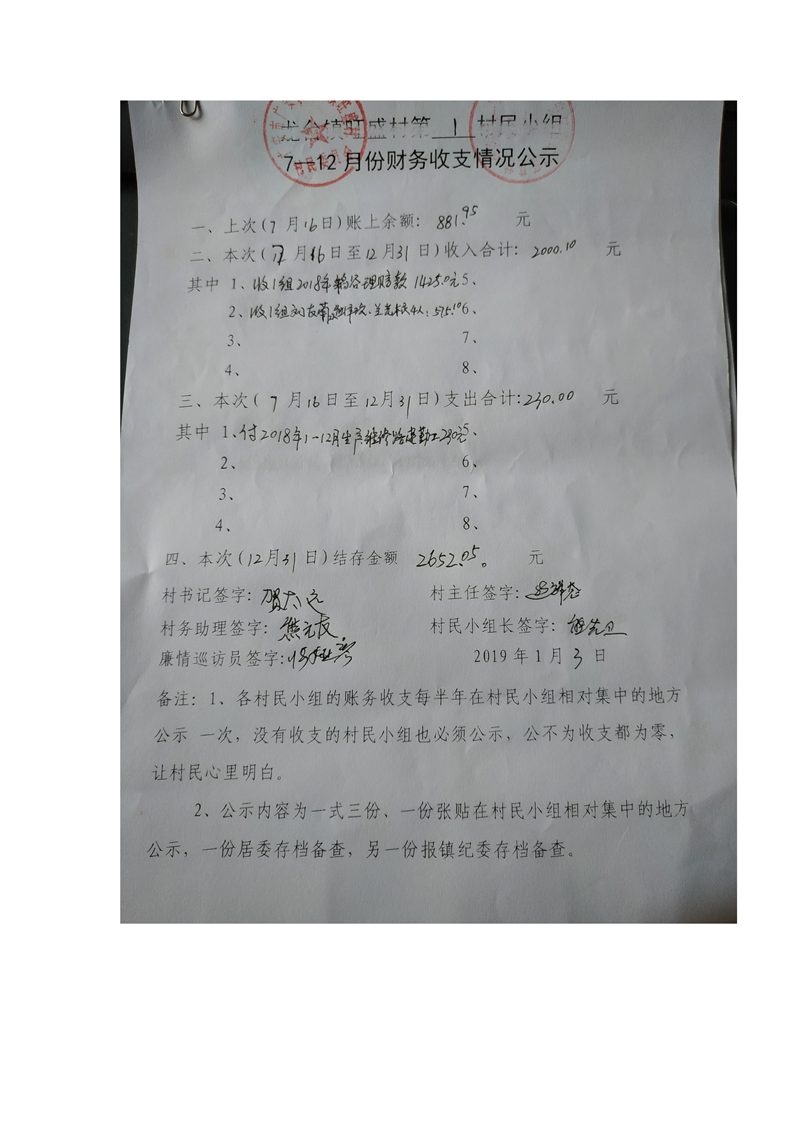 龙台镇旺盛村第 1 村民小组
7—12月份财务收支情况公示
一、上次(7月16日)账上余额: 881.95 元
二、本次(7月16日至12月31日)收入合计: 2000.10 元
其中 1、收1组2018年 理赔款1425.0元 5、
2、收1组刘 4人:575.10 6、
3、 7、
4、 8、
三、本次(7月16日至12月31日)支出合计:230.00 元
其中 1、付2018年1-12月生产维修路 勤工230元 5、
2、 6、
3、 7、
4、 8、
四、本次(12月31日)结存金额 2652.05。 元
村书记签字: 村主任签字:
村务助理签字: 焦元友 村民小组长签字:
廉情巡访员签字: 2019年1月3日
备注:1、各村民小组的账务收支每半年在村民小组相对集中的地方
公示 一次,没有收支的村民小组也必须公示,公不为收支都为零,
让村民心里明白。
2、公示内容为一式三份、一份张贴在村民小组相对集中的地方
公示,一份居委存档备查,另一份报镇纪委存档备查。